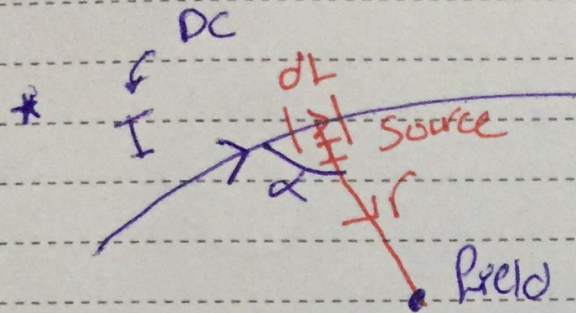 DC
* I
dL
source
α
r
field